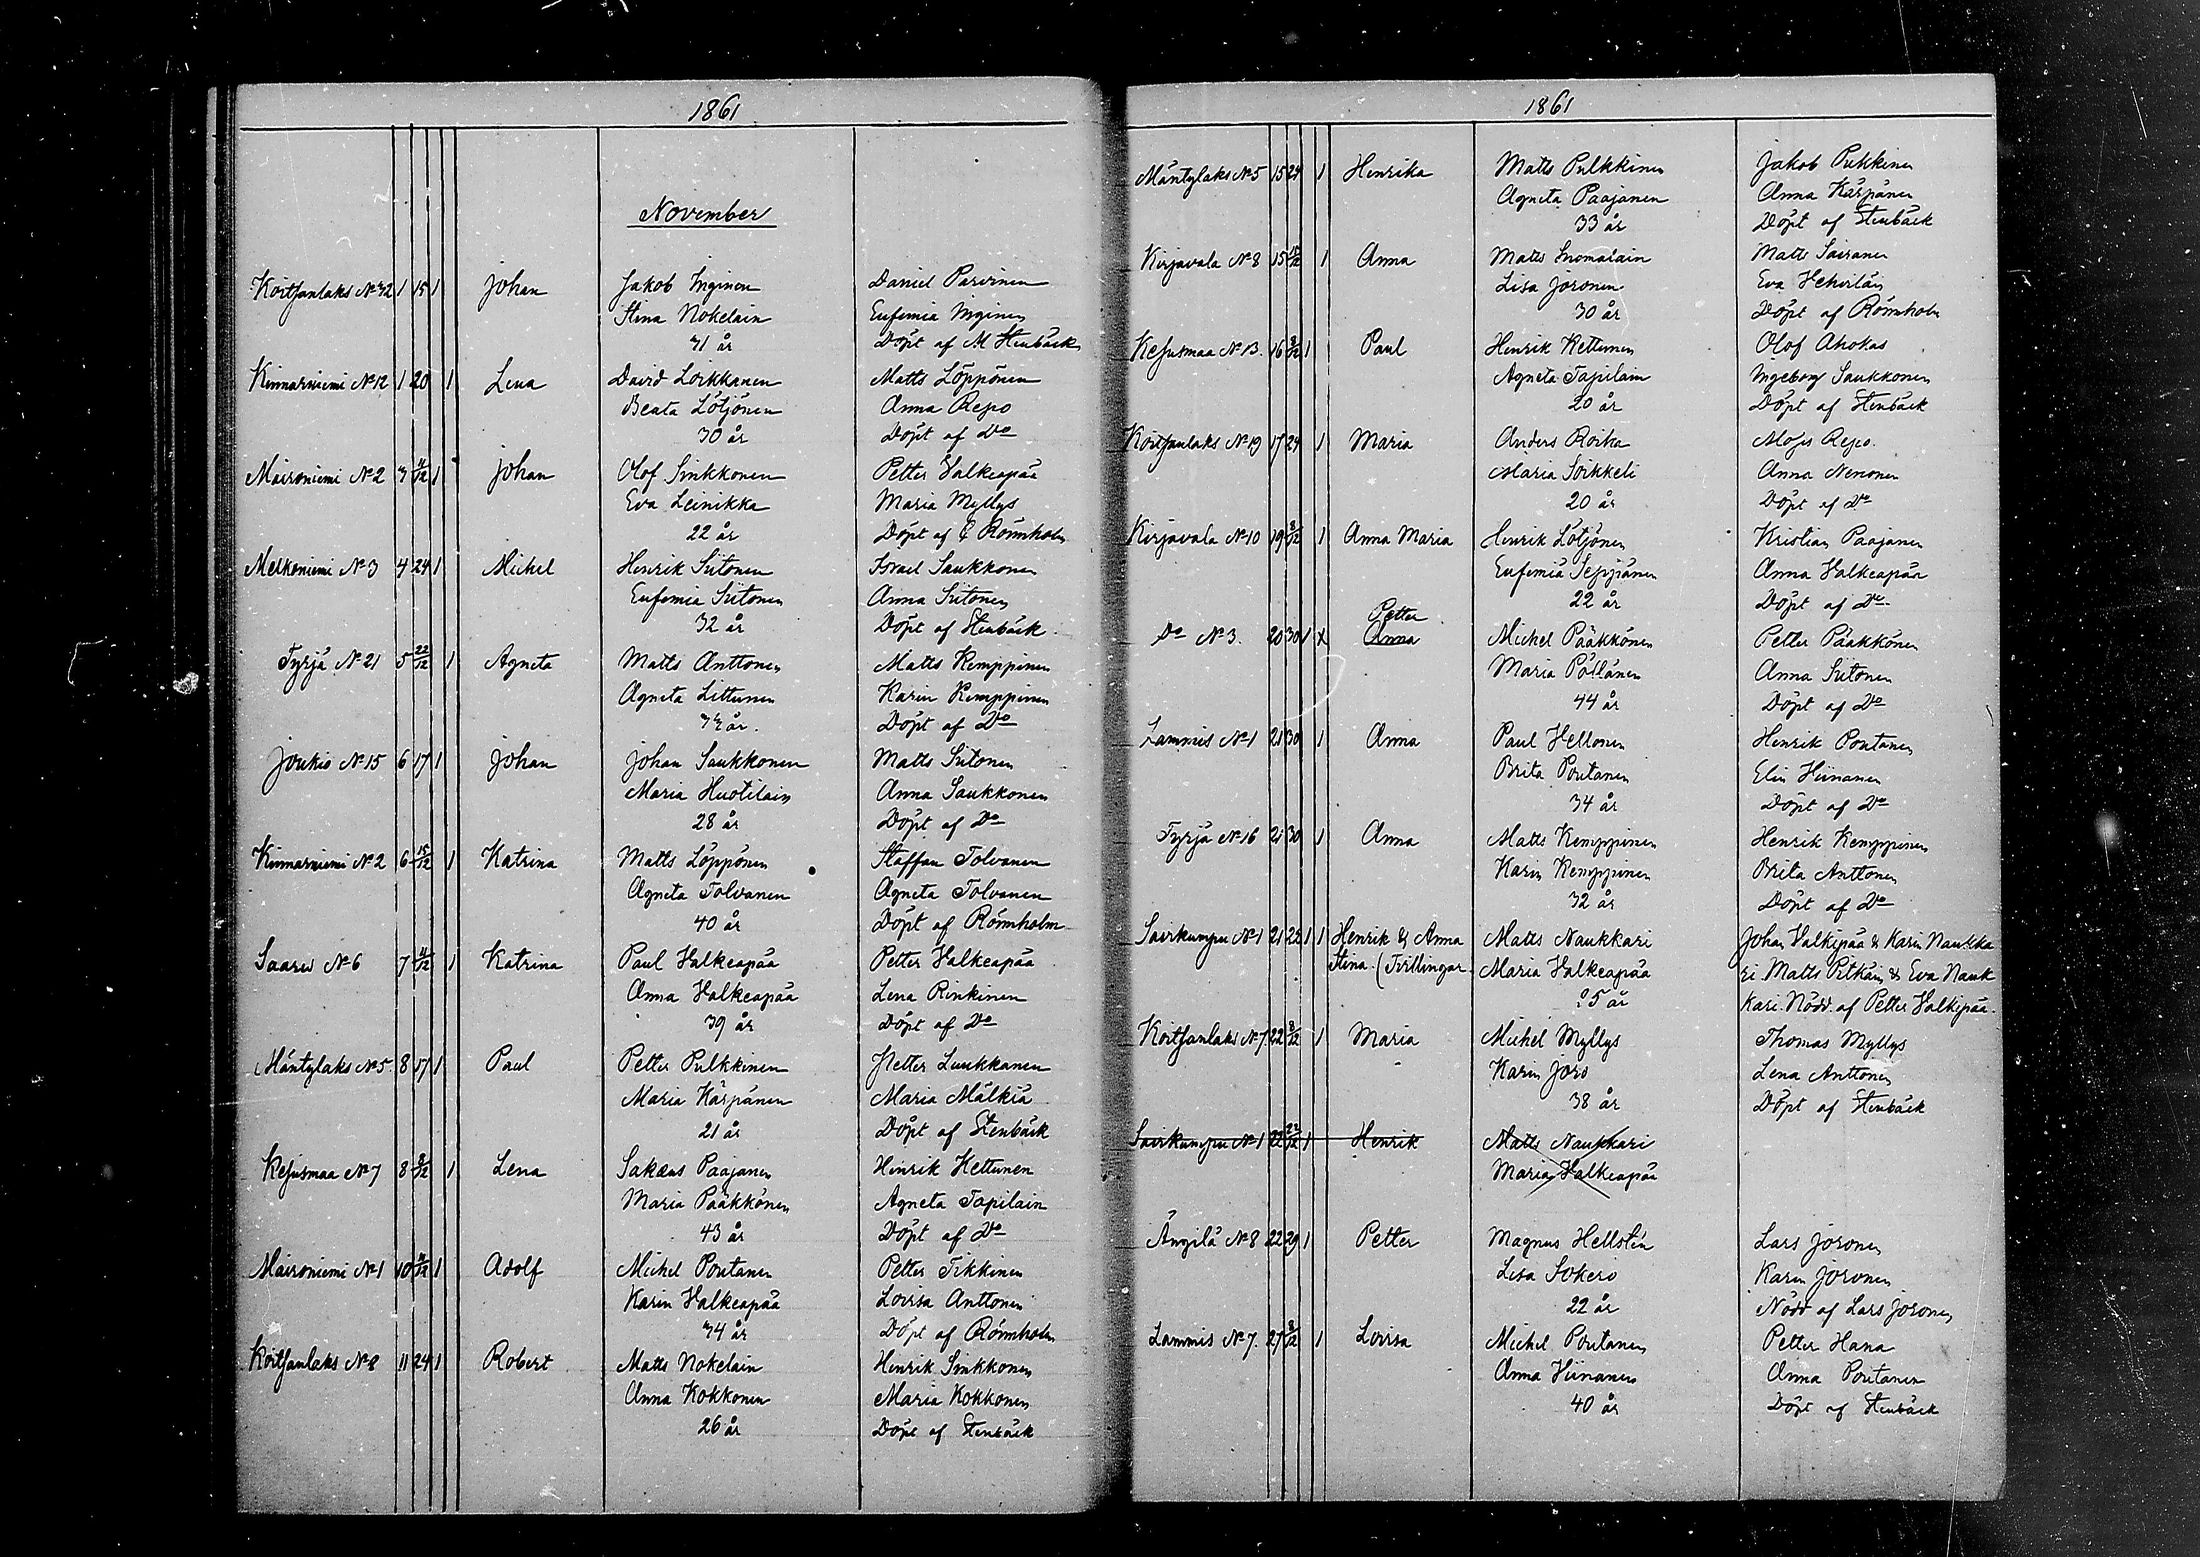 1861
November
Koitsanlaks No 32 1 15 1 Johan Jakob Inginen Daniel Parvinen
Stina Nokelain Eufemia Inginen
31 år Döpt af M Stenbäck
Kinnarniemi No 12 1 20 1 Lena David Loikkanen Matts Löppönen
Beata Lötjönen Anna Repo
30 år Döpt af Do
Maironiemi No 2 3 4/12 1 Johan Olof Sinkkonen Petter Valkeapää
Eva Leinikka Maria Myllys
22 år Döpt af C Rönnholm
Melkoniemi No 3 4 24 1 Michel Henrik Siitonen Israel Saukkonen
Eufemia Siitonen Anna Siitonen
32 år Döpt af Stenbäck
Tyrjä No 21 5 22/12 1 Agneta Matts Anttonen Matts Kemppinen
Agneta Littunen Karin Kemppinen
år. Döpt af Do
Joukio No 15 6 17 1 Johan Johan Saukkonen Matts Siitonen
Maria Huotilain Anna Saukkonen
28 år Döpt af Do
Kinnarniemi No 2 6 15/12 1 Katrina Matts Löppönen Staffan Tolvanen
Agneta Tolvanen Agneta Tolvanen
40 år Döpt af Rönnholm
Saaru No 6 7 4/12 1 Katrina Paul Valkeapää Petter Valkeapää
Anna Valkeapää Lena Rinkinen
39 år Döpt af Do
Mäntylaks No 5 8 17 1 Paul Petter Pulkkinen Petter Luukkanen
Maria Kärpänen Maria Mälkiä
21 år Döpt af Stenbäck
Kesusmaa No 7 8 8/12 1 Lena Sakeus Paajanen Henrik Kettunen
Maria Pääkkönen Agneta Tapilain
43 år Döpt af Do
Maironiemi No 1 10 4/12 1 Adolf Michel Poutanen Petter Tikkinen
Karin Valkeapää Lovisa Anttonen
34 år Döpt af Rönnholm
Koitsanlaks No 8 11 24 1 Robert Matts Nokelain Henrik Sinkkonen
Anna Kokkonen Maria Kokkonen
26 år Döpt af Stenbäck
1861
Mäntylaks No 5 15 24 1 Henrika Matts Pulkkinen Jakob Pulkkinen
Agneta Paajanen Anna Kärpänen
33 år Döpt af Stenbäck
Kirjavala No 8 15 15/12 1 Anna Matts Suomalain Matts Sairanen
Lisa Joronen Eva
30 år Döpt af Rönnholm
Kesusmaa No 13. 16 8/12 1 Paul Henrik Kettunen Olof Ahokas
Agneta Tapilain Ingeborg Saukkonen
20 år Döpt af Stenbäck
Koitsanlaks No 19 17 24 1 Maria Anders Roika Moses Repo.
Maria Soikkeli Anna Nenonen
20 år Döpt af Do
Kirjavala No 10 19 8/12 1 Anna Maria Henrik Lötjönen Kristian Paajanen
Eufemia Seppänen Anna Valkeapää
22 år Döpt af Do
Petter
Do No 3. 20 30 1 x Anna Michel Pääkkönen Petter Pääkkönen
Maria Pöllänen Anna Siitonen
44 år Döpt af Do
Lammis No 1 21 30 1 Anna Paul Hellonen Henrik Poutanen
Brita Poutanen Elin Hiinanen
34 år Döpt af Do
Tyrjä No 16 21 30 1 Anna Matts Kemppinen Henrik Kemppinen
Karin Kemppinen Brita Anttonen
32 år Döpt af Do
Savikumpu No 1 21 1 1 Henrik & Anna Matts Naukkari Johan Valkipää & Karin Naukka
Stina. (Tvillingar Maria Valkeapää ri Matts Pitkän & Eva Nauk
5 år kari. Nödd. af Petter Valkipää.
Koitsanlaks No 7. 22 8/12 1 Maria Michel Myllys Thomas Myllys
Karin Joro Lena Anttonen
38 år Döpt af Stenbäck
Savikumpu No 1 22 22/12 1 Henrik Matts Naukkari
Maria Valkeapää
Ängilä No 8 22 29 1 Petter Magnus Hellstén Lars Joronen
Lisa Sokero Karin Joronen
22 år Nödd af Lars Joronen
Lammis No 7. 27 8/12 1 Lovisa Michel Poutanen Petter Hana
Anna Hiinanen Anna Poutanen
40 år Döpt af Stenbäck